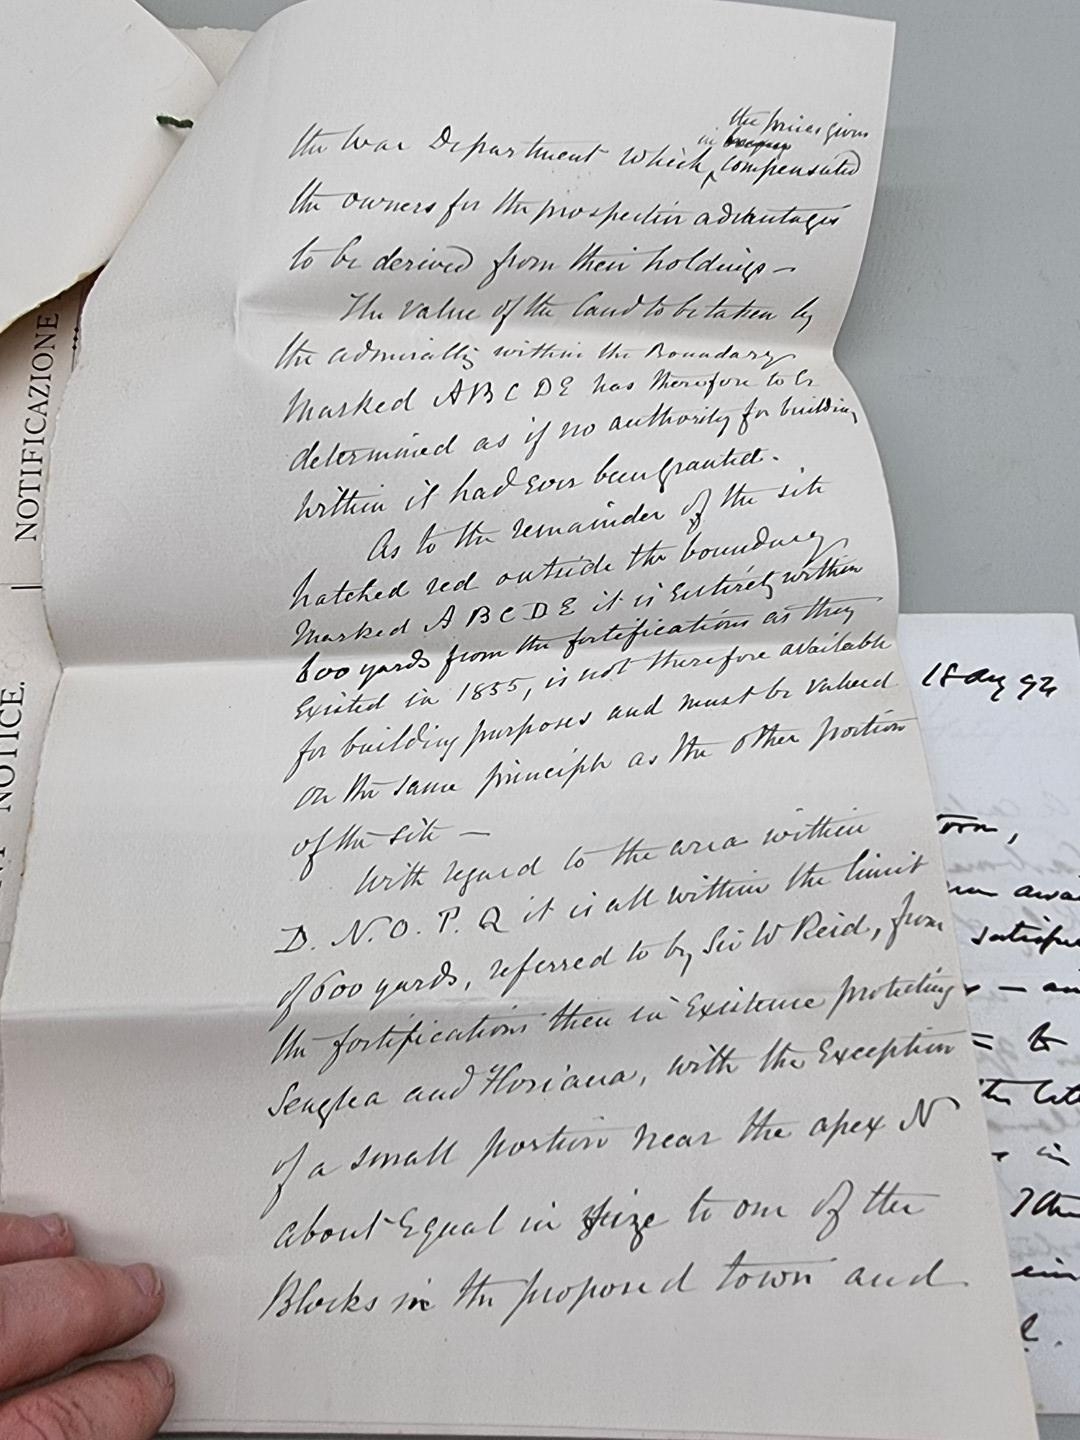 the prices given
in
the War Department which compensated
the owners for the prospective advantages
to be derived from their holdings —
The value of the land to be taken by
the admiralty within the Boundary
Marked A B C D E has therefore to be
determined as if no authority for building
within it had ever been granted.
As to the remainder of the site
hatched red outside the boundary
Marked A B C D E it is Entirely within
600 yards from the fortifications as they
Existed in 1855, is not therefore available
for building purposes and must be valued
on the same principle as the other portion
of the site —
With regard to the area within
D. N. O. P. Q it is all within the limit
of 600 yards, referred to by Sir W Reid, from
the fortifications then in Existence protecting
Senglea and Floriana, with the Exception
of a small portion near the apex N
about Equal in size to one of the
Blocks in the proposed town and
NOTIFICAZIONE
NOTICE.
92
satisfa
— an
in